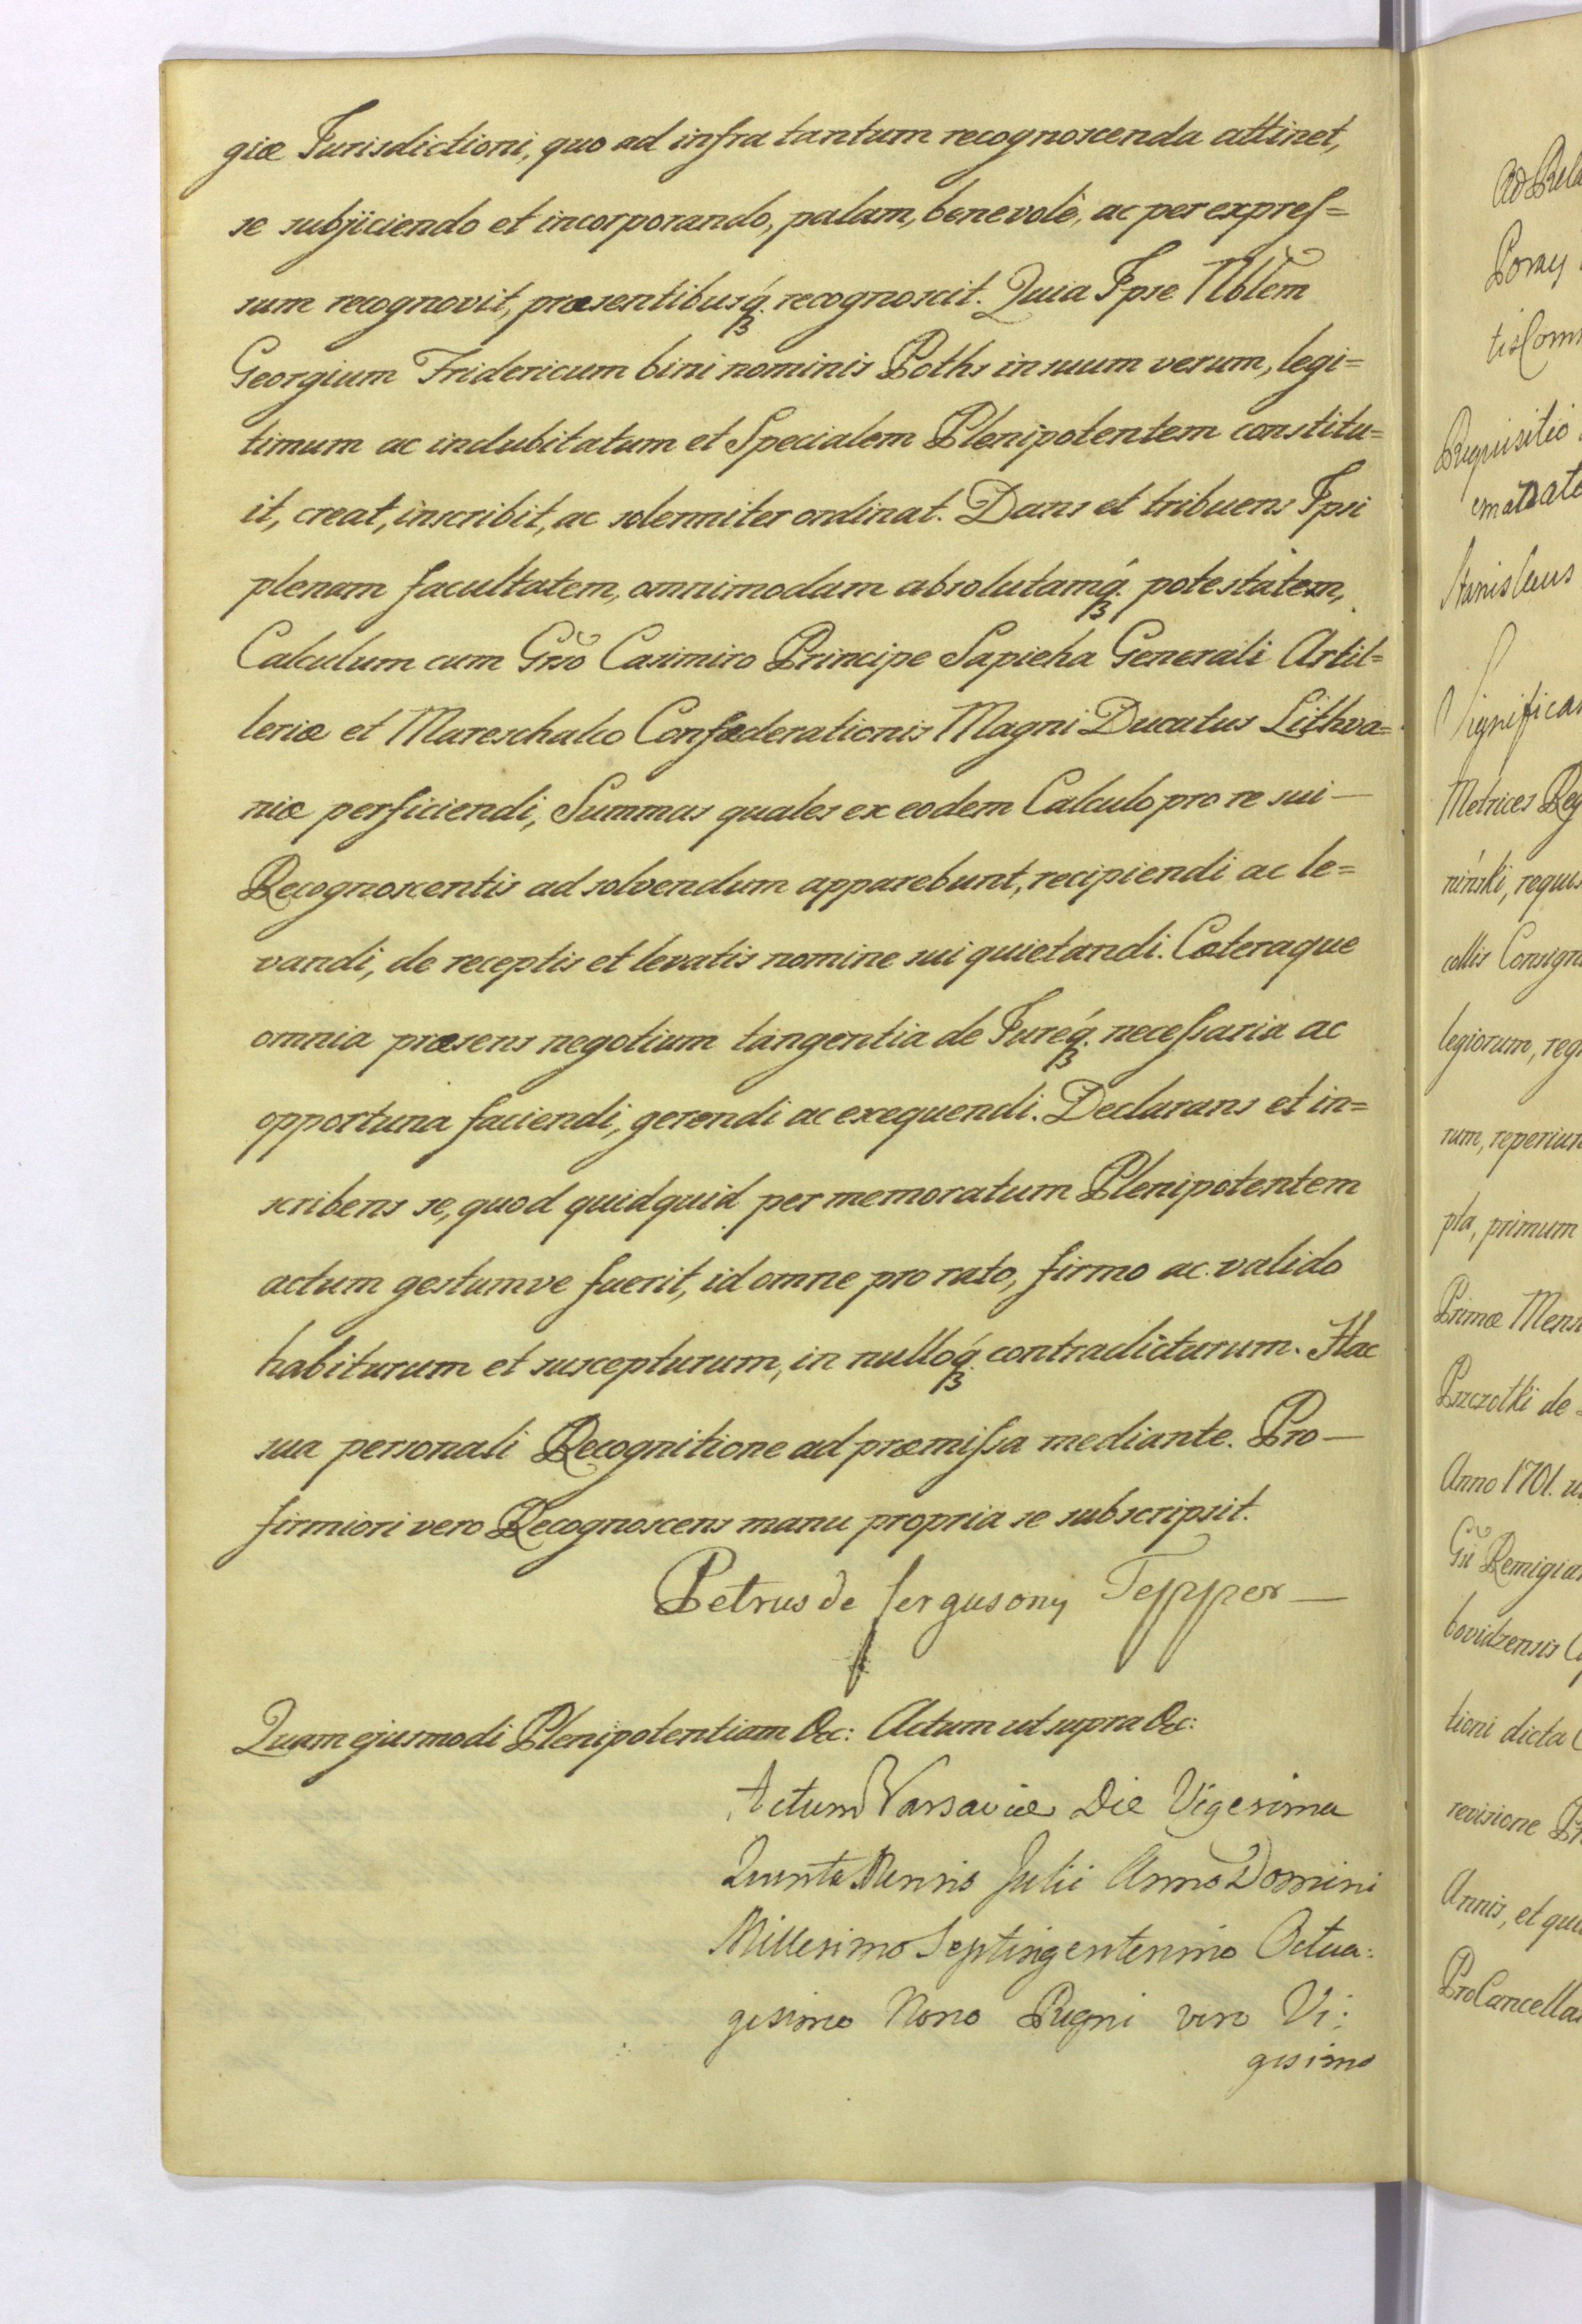 giæ Jurisdictioni, quo ad infra tantum recognoscenda attinet,
se subjiciendo et incorporando, palam, benevolè, ac per expres=
sum recognovit, præsentibusq́. recognoscit. Quia Ipse Nblem
Georgium Fridericum bini nominis Poths in suum verum, legi=
timum ac indubitatum et Specialem Plenipotentem constitu=
it, creat, inscribit, ac solenniter ordinat. Dans et tribuens Ipsi
plenam facultatem, omnimodam absolutamq́. potestatem,
Calculum cum Grso Casimiro Principe Sapieha Generali Artil=
leriæ et Mareschalco Confæderationis Magni Ducatus Lithva=
niæ perficiendi, Summas quales ex eodem Calculo pro re sui —
Recognoscentis ad solvendum apparebunt, recipiendi ac le=
vandi, de receptis et levatis nomine sui quietandi. Cæteraque
omnia præsens negotium tangentia de Jureq́. necessaria ac
opportuna faciendi, gerendi ac exequendi. Declarans et in=
scribens se, quod quidquid per memoratum Plenipotentem
actum gestumve fuerit, id omne pro rato, firmo ac valido
habiturum et suscepturum, in nulloq́. contradicturum. Hac
sua personali Recognitione ad præmissa mediante. Pro —
firmiori vero Recognoscens manu propria se subscripsit.
Petrus de Fergusony Tepper —
Quam ejusmodi Plenipotentiam &c: Actum ut supra &c:
Actum Varsaviæ Die Vigesima
Quinta Mensis Julii Anno Domini
Millesimo Septingentesimo Octua:
gesimo Nono Regni vero Vi:
gesimo
Ad Rela
Poray
tis Com
Requisitio
Stanislaus
Significa
Metrices Reg
nínski, requis
collis Consign
legiorum, reg
rum, reperiun
pla, primum
Primæ Mens
Pszczotki de
Anno 1701. u
Gsi Remigia
bovidzensis
tioni dicta
revisione
Annis, et qu
ProCancella